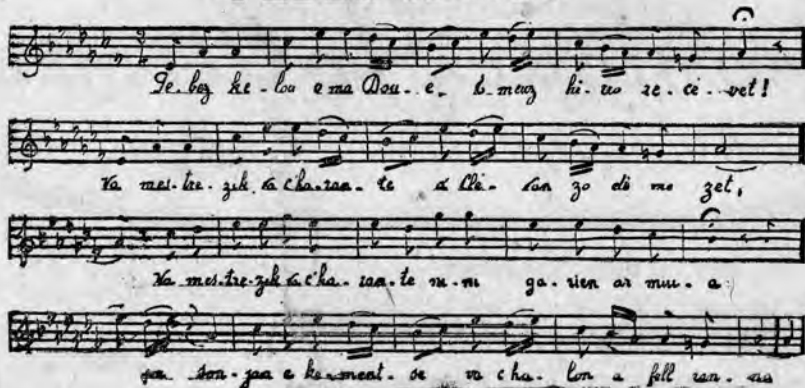 Pe-bez ke-lou o ma Dou-e, 'm-euz hi-rio re-ce-vet!
Va mes-tre-zik, va c'ha-ran-te a Glé- zo di mezet,
Va mes-tre-zik va c'ha-ran-te ni- ga-rien ar mui-a
son-jan e ke-ment-se va cha-lon a fell ran-na